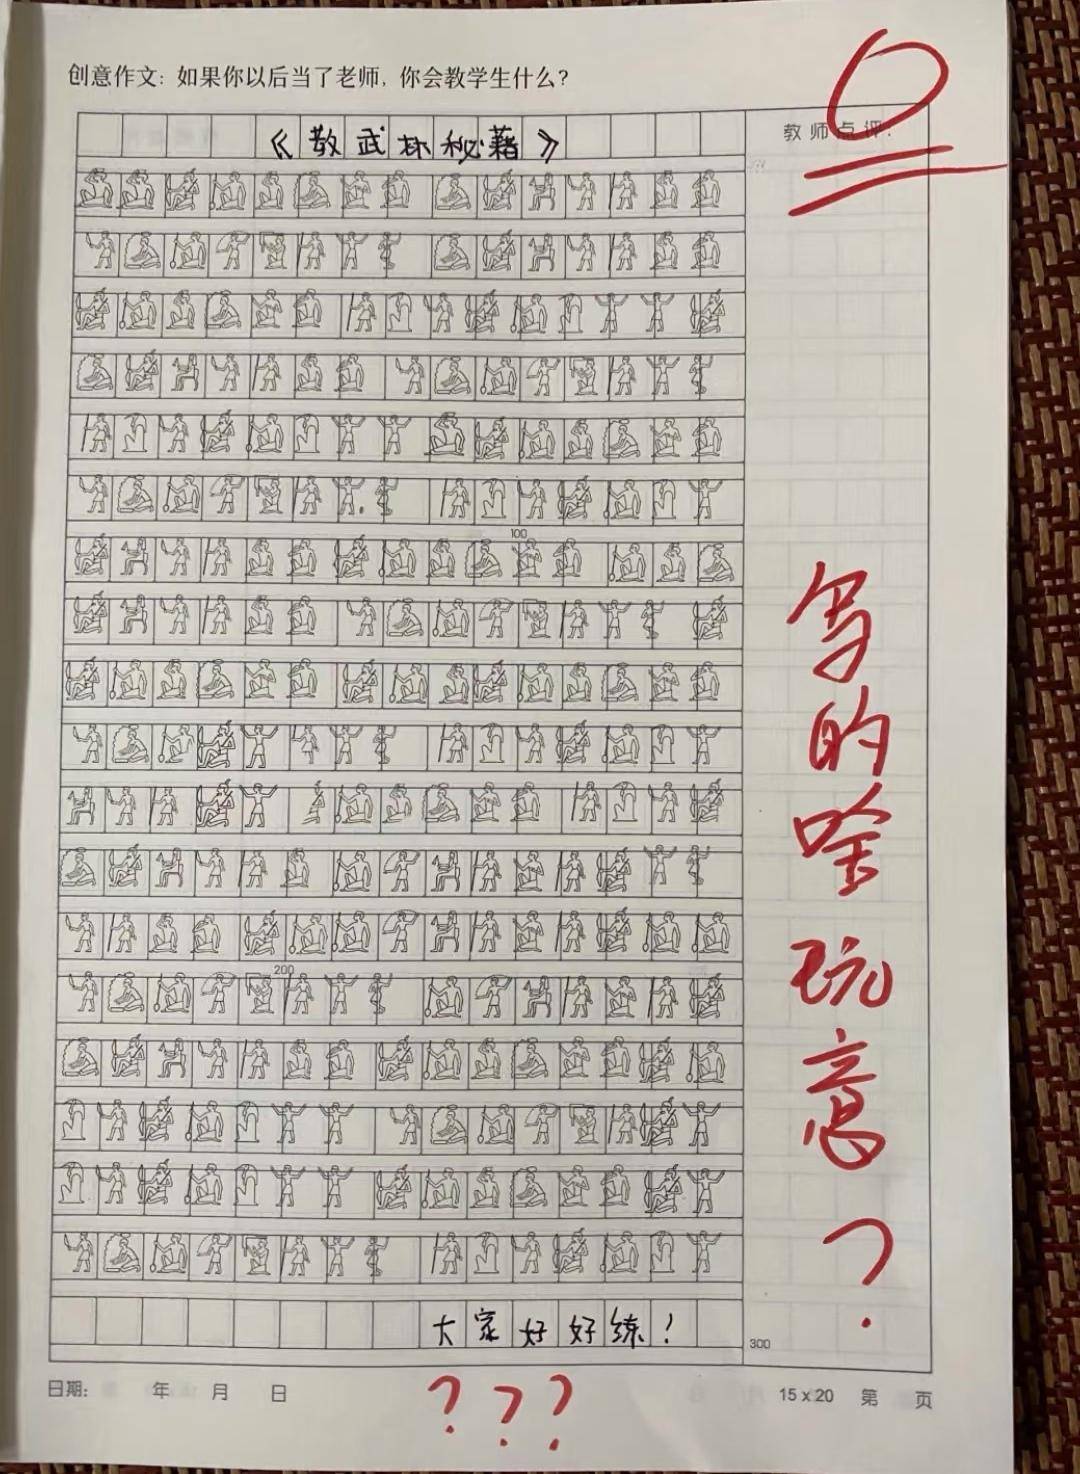 创意作文：如果你以后当了老师，你会教学生什么？
《教武林秘籍》
教师点评：
0
100
200
大家好好练！
300
日期： 年 月 日
15×20 第 页
写的啥玩意？
？？？